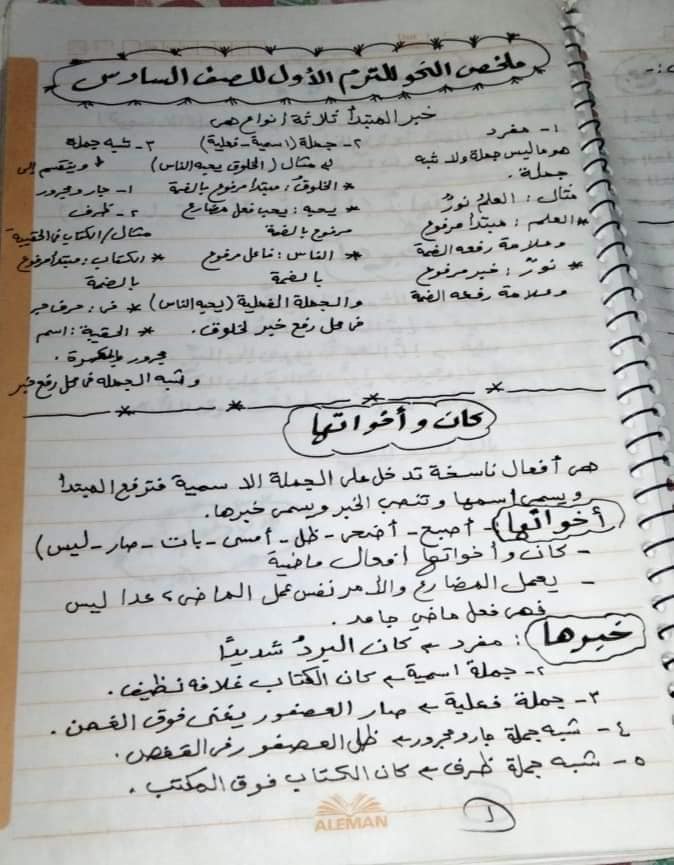 ملخص النحو للترم الأول للصف السادس
خبر المبتدأ ثلاثة أنواع هى
١- مفرد
هو ما ليس جملة ولا شبه
جملة.
مثال: العلمُ نورٌ
* العلم: مبتدأ مرفوع
وعلامة رفعه الضمة
* نورٌ: خبر مرفوع
وعلامة رفعه الضمة
٢- جملة (اسمية - فعلية)
مثال (الخلوق يحبه الناس)
* الخلوق: مبتدأ مرفوع بالضمة
* يحبه: يحب فعل مضارع
مرفوع بالضمة
* الناس: فاعل مرفوع
بالضمة
والجملة الفعلية (يحبه الناس)
فى محل رفع خبر لخلوق.
٣- شبه جملة
وينقسم إلى
١- جار ومجرور
٢- ظرف
مثال/ الكتاب فى الحقيبة
* الكتاب: مبتدأ مرفوع
بالضمة
* فى: حرف جر
* الحقيبة: اسم
مجرور بالكسرة.
وشبه الجملة فى محل رفع خبر
كان وأخواتها
هى أفعال ناسخة تدخل على الجملة الاسمية فترفع المبتدأ
ويسمى اسمها وتنصب الخبر ويسمى خبرها.
أخواتها - أصبح - أضحى - ظل - أمسى - بات - صار - ليس)
- كان وأخواتها أفعال ماضية
- يعمل المضارع والأمر نفس عمل الماضى، عدا ليس
فهى فعل ماضي جامد.
خبرها: مفرد كان البردُ شديدًا
٢- جملة اسمية كان الكتاب غلافه نظيف.
٣- جملة فعلية صار العصفور يغنى فوق الغصن.
٤- شبه جملة جار ومجرور ظل العصفور فى القفص.
٥- شبه جملة ظرف كان الكتاب فوق المكتب.
١
ALEMAN